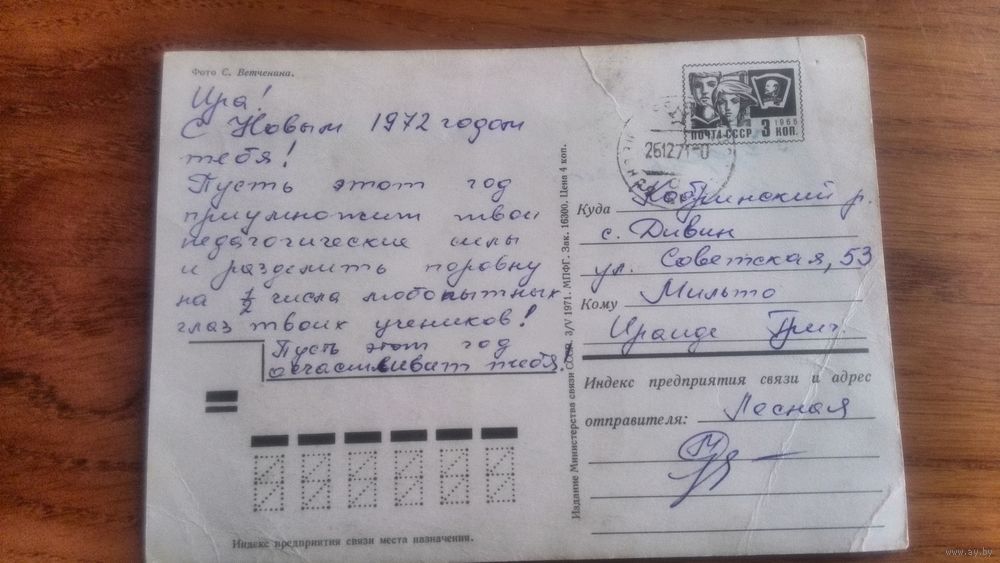 Фото С. Ветченана.
Ира!
С Новым 1972 годом
тебя!
Пусть этот год
приумножит твои
педагогические силы
и разделить поровну
на 1/2 числа любопытных
глаз твоих учеников!
Пусть этот год
осчастливит тебя.
Индекс предприятия связи места назначения.
Издание Министерства связи СССР. 3/V 1971. МПФГ. Зак. 16300. Цена 4 коп.
1966
ПОЧТА СССР 3 КОП.
261271-0
Куда Кобринский р.
с. Дивин
ул. Советская, 53
Кому Мильто
Ираиде Григ.
Индекс предприятия связи и адрес
отправителя: Лесная
www.ay.by